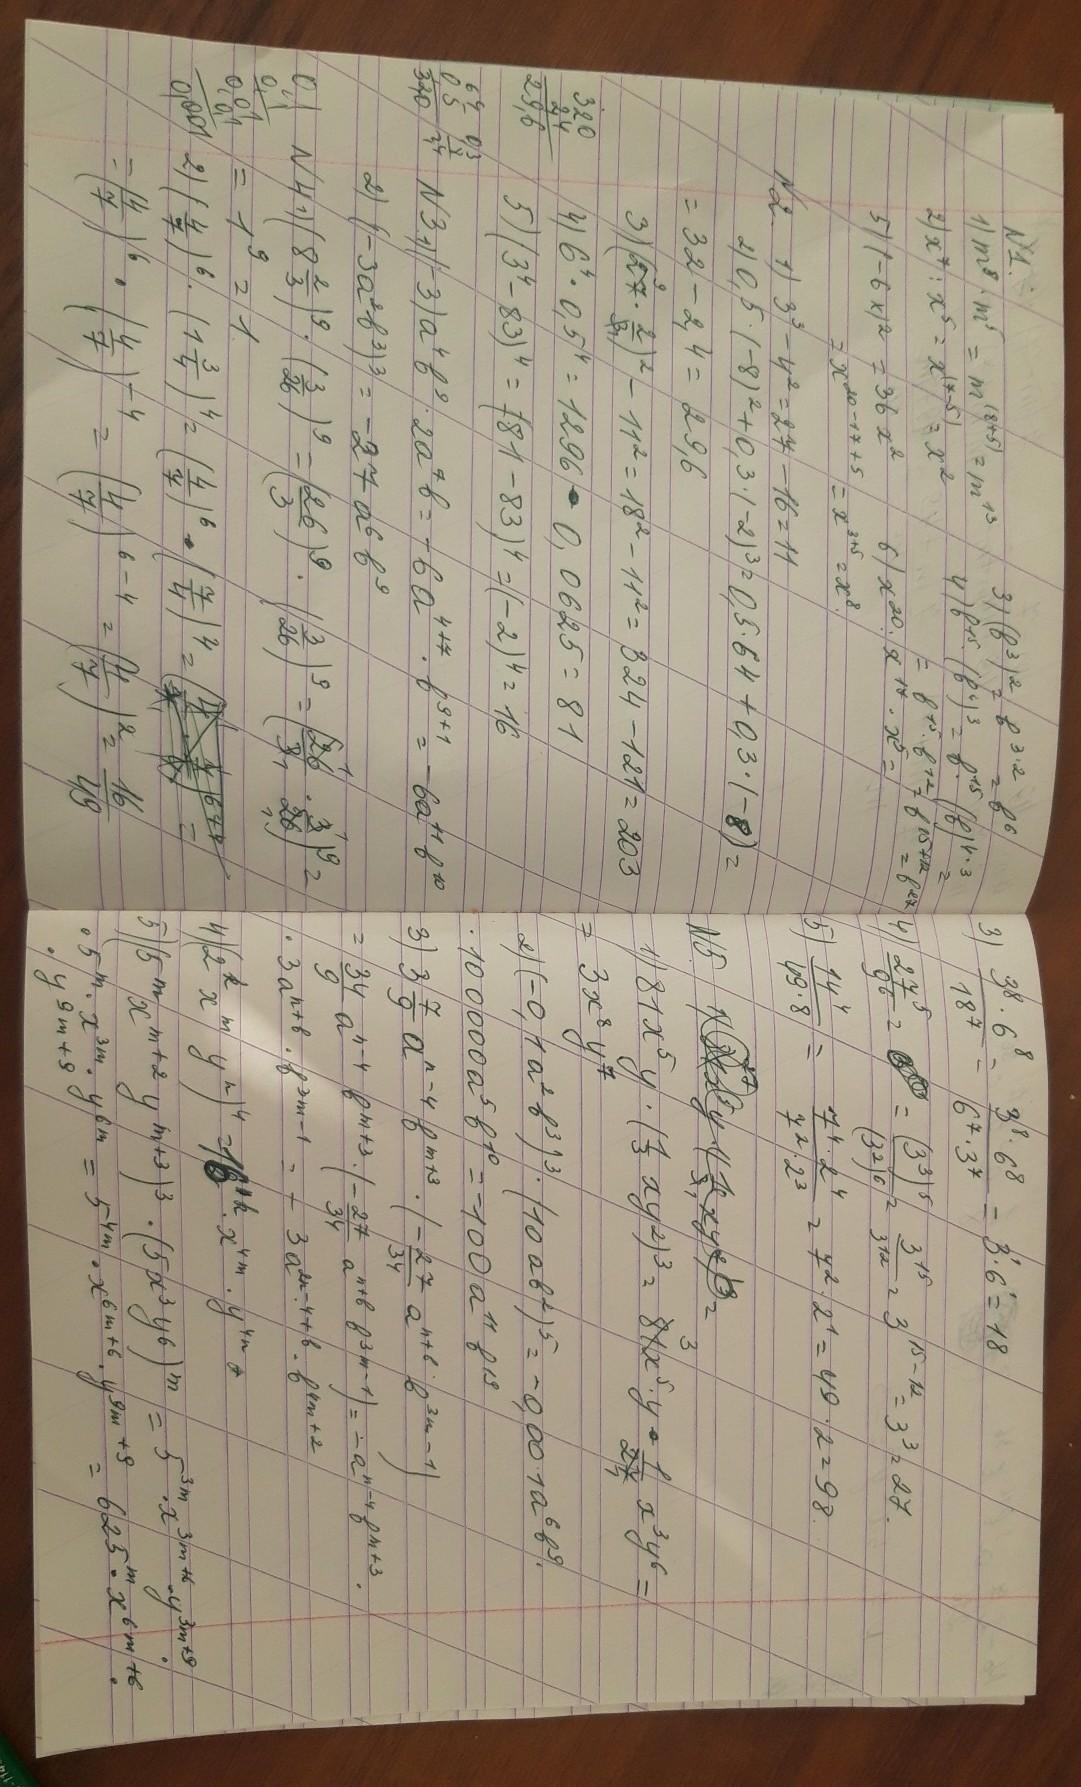 N1.
1) m⁸ · m⁵ = m⁽⁸⁺⁵⁾ = m¹³
2) x⁷ : x⁵ = x⁽⁷⁻⁵⁾ = x²
3) (b³)² = b³·² = b⁶
4) b¹⁵ · (b⁴)³ = b¹⁵ · (b)⁴·³ =
= b¹⁵ · b¹² = b¹⁵⁺¹² = b²⁷
5) (-6x)² = 36x²
6) x²⁰ : x¹⁷ · x⁵ =
= x²⁰⁻¹⁷⁺⁵ = x³⁺⁵ = x⁸.
N2. 1) 3³ - 4² = 27 - 16 = 11
2) 0,5 · (-8)² + 0,3 · (-2)³ = 0,5 · 64 + 0,3 · (-8) =
= 32 - 2,4 = 29,6
3) (27 · 2/3)² - 11² = 18² - 11² = 324 - 121 = 203
4) 6⁴ · 0,5⁴ = 1296 · 0,0625 = 81
5) (3⁴ - 83)⁴ = (81 - 83)⁴ = (-2)⁴ = 16
320
2,4
29,6
64
0,5
320
N3. 1) (-3)a⁴b⁹ · 2a⁷b = -6a⁴⁺⁷ · b⁹⁺¹ = -6a¹¹b¹⁰
2) (-3a²b³)³ = -27a⁶b⁹
N4. 1) (8 2/3)⁹ · (3/26)⁹ = (26/3)⁹ · (3/26)⁹ = (26/3 · 3/26)⁹ =
= 1⁹ = 1
0,1
0,1
0,01
0,1
0,001
2) (4/7)⁶ · (1 3/4)⁴ = (4/7)⁶ · (7/4)⁴ =
= (4/7)⁶ · (4/7)⁻⁴ = (4/7)⁶⁻⁴ = (4/7)² = 16/49
3) 3⁸ · 6⁸ / 18⁷ = 3⁸ · 6⁸ / 6⁷ · 3⁷ = 3¹ · 6¹ = 18
4) 27⁵ / 9⁶ = (3³)⁵ / (3²)⁶ = 3¹⁵ / 3¹² = 3¹⁵⁻¹² = 3³ = 27.
5) 14⁴ / 49 · 8 = 7⁴ · 2⁴ / 7² · 2³ = 7² · 2¹ = 49 · 2 = 98.
N5.
1) 81x⁵y · (1/3 xy²)³ = 81x⁵ · y · 1/27 x³y⁶ =
= 3x⁸y⁷
2) (-0,1a²b³)³ · (10ab²)⁵ = -0,001a⁶b⁹ ·
· 100000a⁵b¹⁰ = -100a¹¹b¹⁹
3) 3 7/9 aⁿ⁻⁴bᵐ⁺³ · (-27/34 aⁿ⁺⁶ · b³ᵐ⁻¹)
= 34/9 aⁿ⁻⁴bᵐ⁺³ · (-27/34 aⁿ⁺⁶b³ᵐ⁻¹) = -aⁿ⁻⁴bᵐ⁺³ ·
· 3aⁿ⁺⁶ · b³ᵐ⁻¹ = -3a²ⁿ⁻⁴⁺⁶ · b⁴ᵐ⁺²
5) (5ᵐxᵐ⁺²yᵐ⁺³)³ · (5x³y⁶)ᵐ = 5³ᵐ · x³ᵐ⁺⁶ · y³ᵐ⁺⁹ ·
· 5ᵐ · x³ᵐ · y⁶ᵐ = 5⁴ᵐ · x⁶ᵐ⁺⁶ · y⁹ᵐ⁺⁹ = 625ᵐ · x⁶ᵐ⁺⁶ ·
· y⁹ᵐ⁺⁹